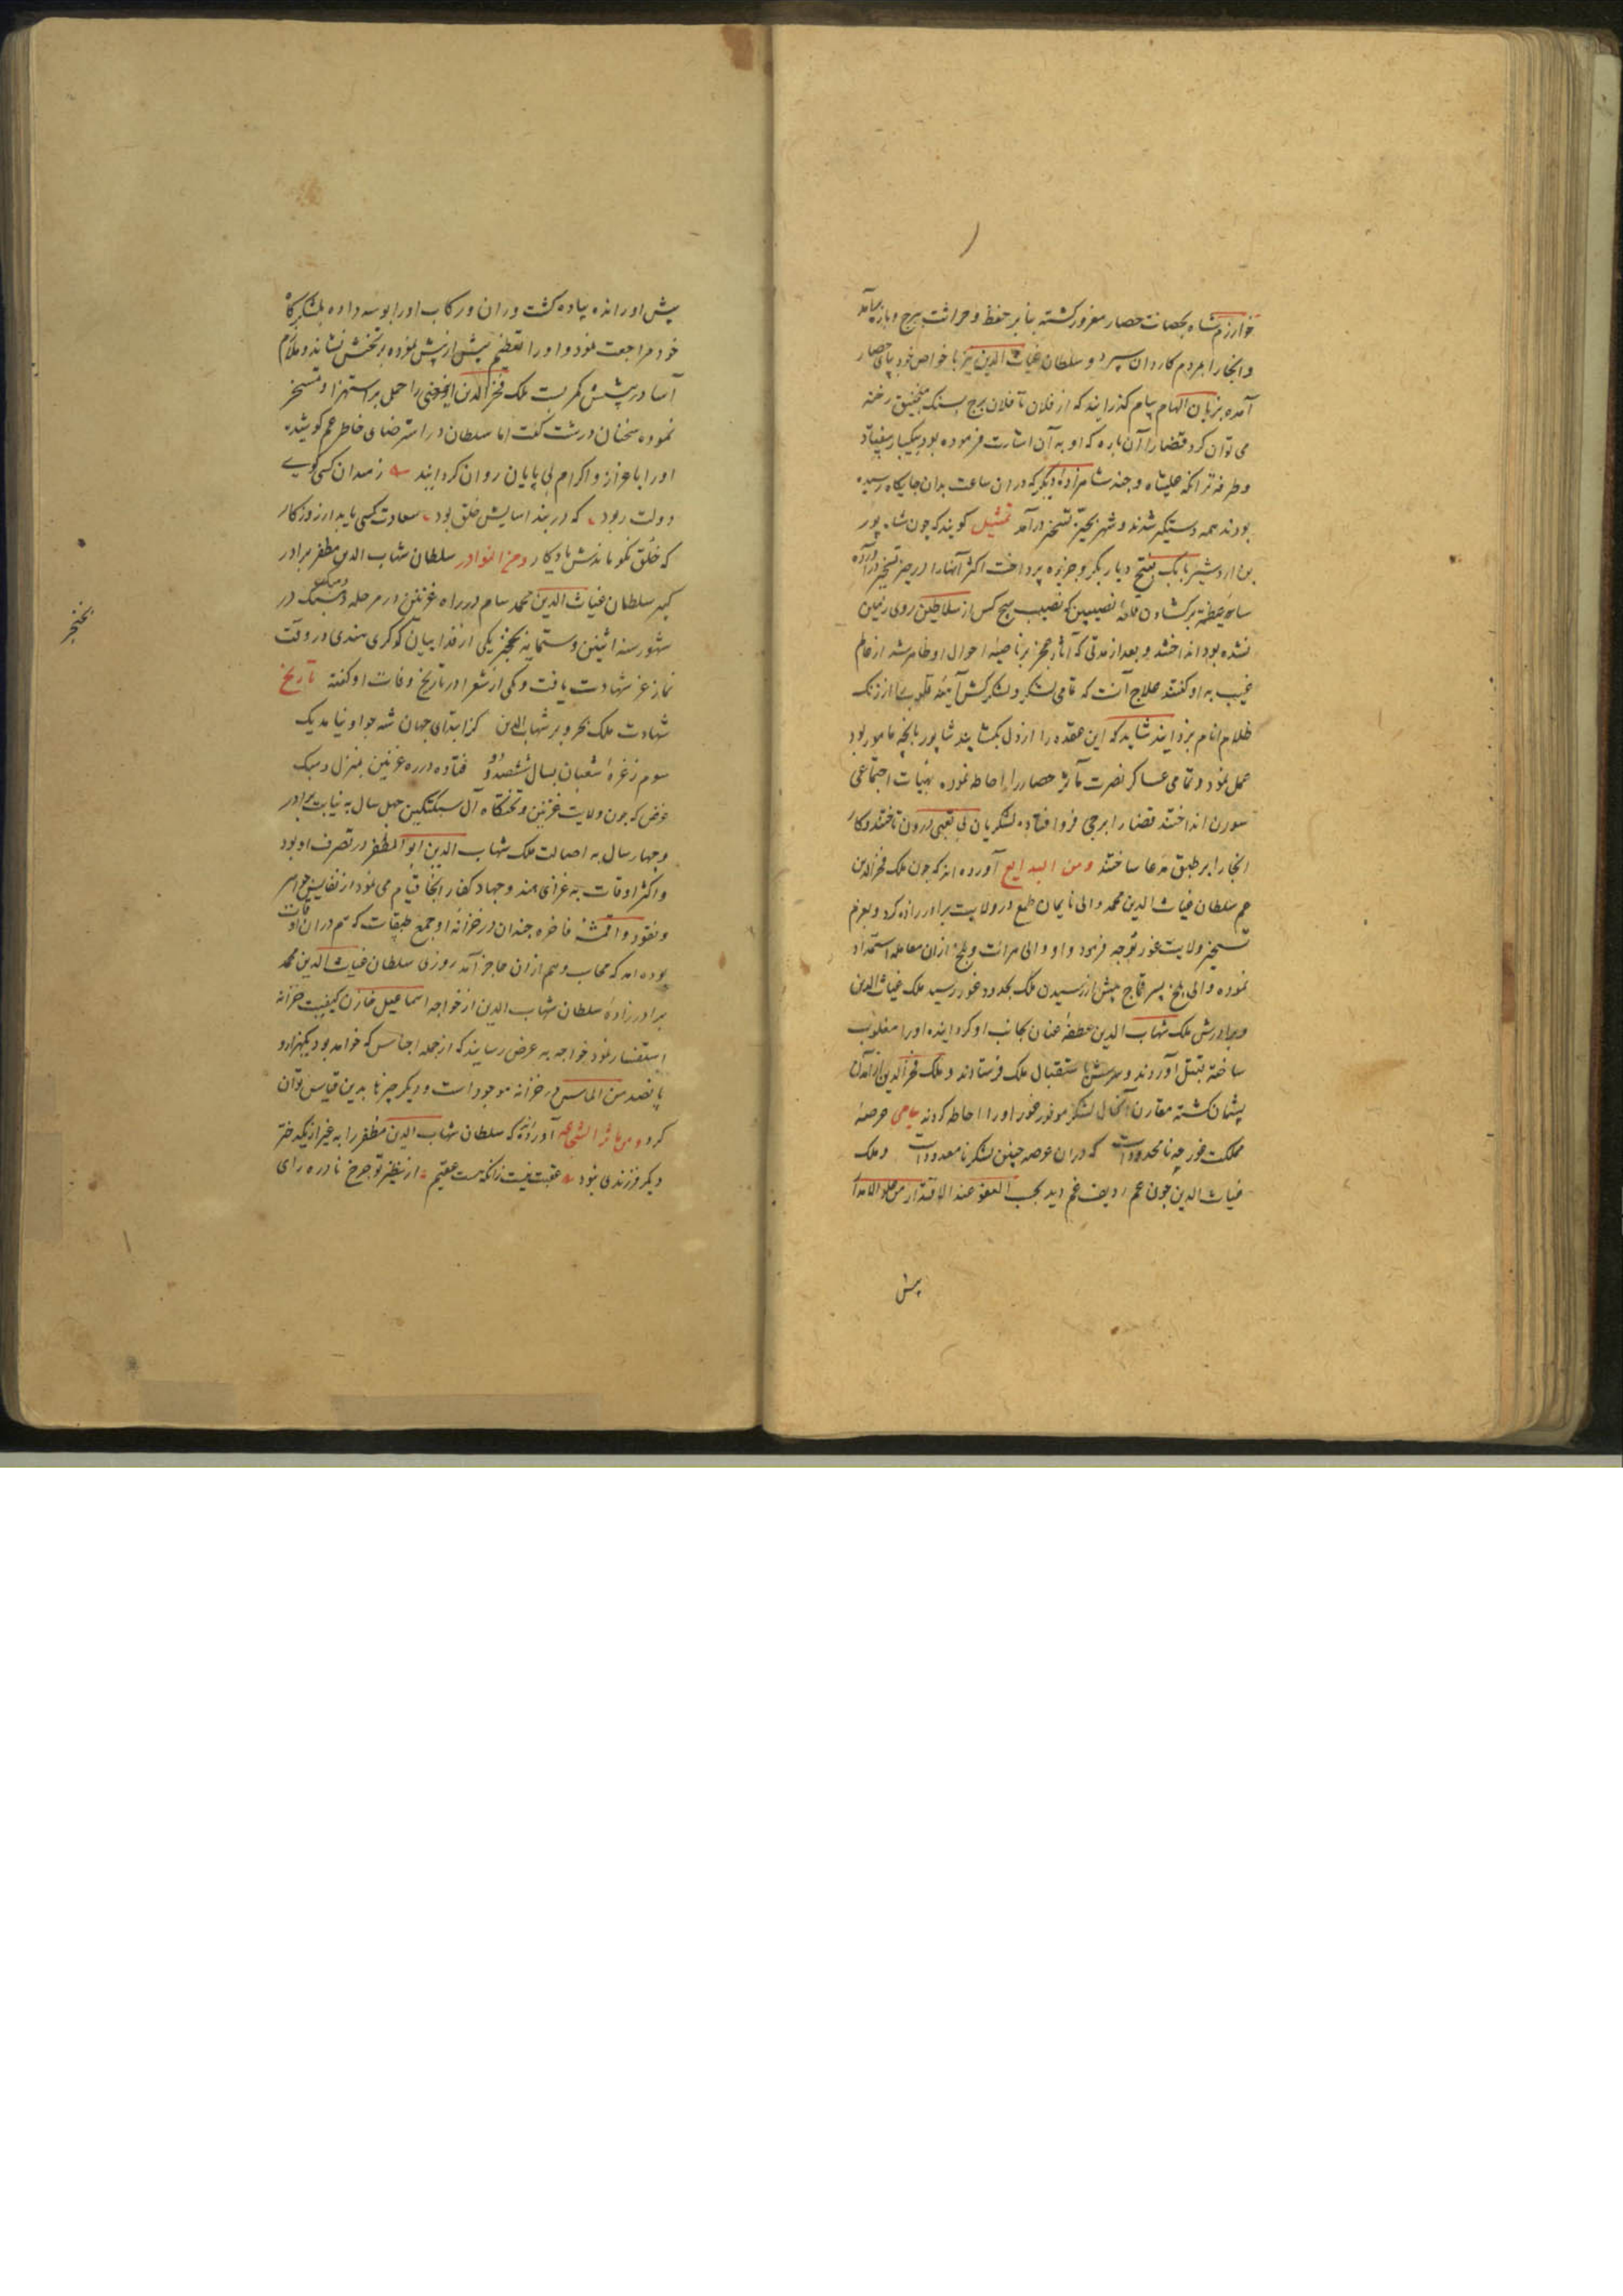 خوارزم شاه بحصانت حصار مغرور گشته بنابر حفظ و حراثت برج و باره نیامد
و انجا را بمردم کاردان سپرد و سلطان غیاث الدین نیز با خواص خود بپای حصار
آمده بزبان الهام پیام گذرانید که از فلان تا فلان برج بسنک منجنیق رخنه
می توان کرد قضا را آن باره که او به آن اشارت فرموده بود بیکبار بیفتاد
و طرفه تر انکه علیشاه و چند شاهزادهٔ دیگر که در ان ساعت بدان جایگاه رسیده
بودند همه دستگیر شدند و شهر بحیز تسخیر درآمد تمثیل گویند که چون شاه پور
بن اردشیر بابک بفتح دیار بکر و جزیره پرداخت اکثر آنها را در حیز تسخیر درآورده
سایهٔ خطه بر گشادن قلعهٔ نصیبین که نصیب هیچ کس از سلاطین روی زمین
نشده بود انداختند و بعد از مدتی که آثار عجز بر ناصیهٔ احوال او ظاهر شد از عالم
غیب به او گفتند علاج آنست که تمامی لشکر و لشکرکش آینهٔ قلوب را از زنک
ظلام انام بزدایند شاید که این عقده را از دل بگشایند شاپور بانچه مامور بود
عمل نمود و تمامی عساکر نصرت مآثر حصار را احاطه نموده بهیات اجتماعی
سورن انداختند قضا را برجی فرو افتاده لشکریان بی تعبی درون تاختند و کار
انجا را بر طبق مدعا ساختند ومن البدایع آورده اند که چون ملک فخرالدین
عم سلطان غیاث الدین محمد والی بامیان طمع در ولایت برادرزاده کرد و بعزم
تسخیر ولایت غور توجه فرمود و او والی هرات و بلخ ازان معامله استمداد
نموده والی بلخ پسر قماج پیش از رسیدن ملک بحدود غور رسید ملک غیاث الدین
و برادرش ملک شهاب الدین عطفهٔ عنان بجانب او گردانیده او را مغلوب
ساخته بقتل آوردند و سرش باستقبال ملک فرستادند و ملک فخرالدین از آمدن
پشیمان گشته مقارن آنحال لشکر موفور غور او را احاطه کردند عرصهٔ
مملکت غور چه نامحدودست که در ان عرصه چنین لشکر نامعدودست و ملک
غیاث الدین چون عم ردیف غم دید بحسب العفو عند الاقتدار من علو الاقدار
پیش
پیش او رانده پیاده گشت و ران و رکاب او را بوسه داده بلشکرگاه
خود مراجعت نمود و او را تعظیم بیش از پیش نموده بر تختش نشاند و ملازم
آسا در پیشش کمر بست ملک فخرالدین این معنی را حمل بر استهزا و تمسخر
نموده سخنان درشت گفت اما سلطان در استرضای خاطر عم کوشیده
او را باعزاز و اکرام بی پایان روان گردانید ز میدان کسی گوی
دولت ربود که در بند اسایش خلق بود سعادت کسی یابد از روزگار
که خلق نکو ماندش یادگار ومن النوادر سلطان شهاب الدین مظفر برادر
کهتر سلطان غیاث الدین محمد سام در راه غزنین در مرحله دمیک در
شهور سنه اثنین و ستمایه بخنجر یکی از فداییان کوکری هندی در وقت
نماز عز شهادت یافت و یکی از شعرا در تاریخ وفات او گفته تاریخ
شهادت ملک بحر و بر شهاب الدین کز ابتدای جهان شه چو او نیامد یک
سوم ز غرهٔ شعبان بسال ششصد و دو فتاده در ره غزنین بمنزل دمیک
غرض که چون ولایت غزنین و تختگاه آل سبکتگین چهل سال به نیابت برادر
و چهار سال به اصالت ملک شهاب الدین ابو المظفر در تصرف او بود
و اکثر اوقات به غزای هند و جهاد کفار انجا قیام می نمود از نفایس جواهر
و نقود و اقمشهٔ فاخره چندان در خزانهٔ او جمع که هم دران اوقات
بوده اند که محاسب وهم از ان عاجز آمد روزی سلطان غیاث الدین محمد
برادرزادهٔ سلطان شهاب الدین از خواجه اسماعیل خازن کیفیت خزانه
استفسار نمود خواجه به عرض رسانید که از جمله اجناس که خواهد بود یکهزار و
پانصد من الماس در خزانه موجود است و دیگر چیزها بدین قیاس توان
کرد ومن مآثر الشجاعه آورده اند که سلطان شهاب الدین مظفر را به غیر از یکدختر
دیگر فرزندی نبود عقبت نیست زانکه هست عقیم از نظیر تو چرخ نادره رای
بخنجر